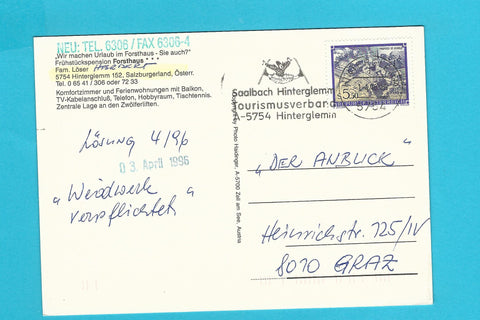 NEU: TEL. 6306 / FAX 6306-4
„Wir machen Urlaub im Forsthaus - Sie auch?"
Frühstückspension Forsthaus
Fam. Löser
5754 Hinterglemm 152, Salzburgerland, Österr.
Tel. 0 65 41 / 306 oder 72 33
Komfortzimmer und Ferienwohnungen mit Balkon,
TV-Kabelanschluß, Telefon, Hobbyraum, Tischtennis.
Zentrale Lage an den Zwölferliften.
Lösung 4/96
03. April 1996
"Weidwerk
verpflichtet"
Photo Haidinger, A-5700 Zell am See, Austria
Saalbach Hinterglemm
Tourismusverband
A-5754 Hinterglemm
S 5.50
5754
"DER ANBLICK"
Heinrichstr. 125/IV
8010 GRAZ